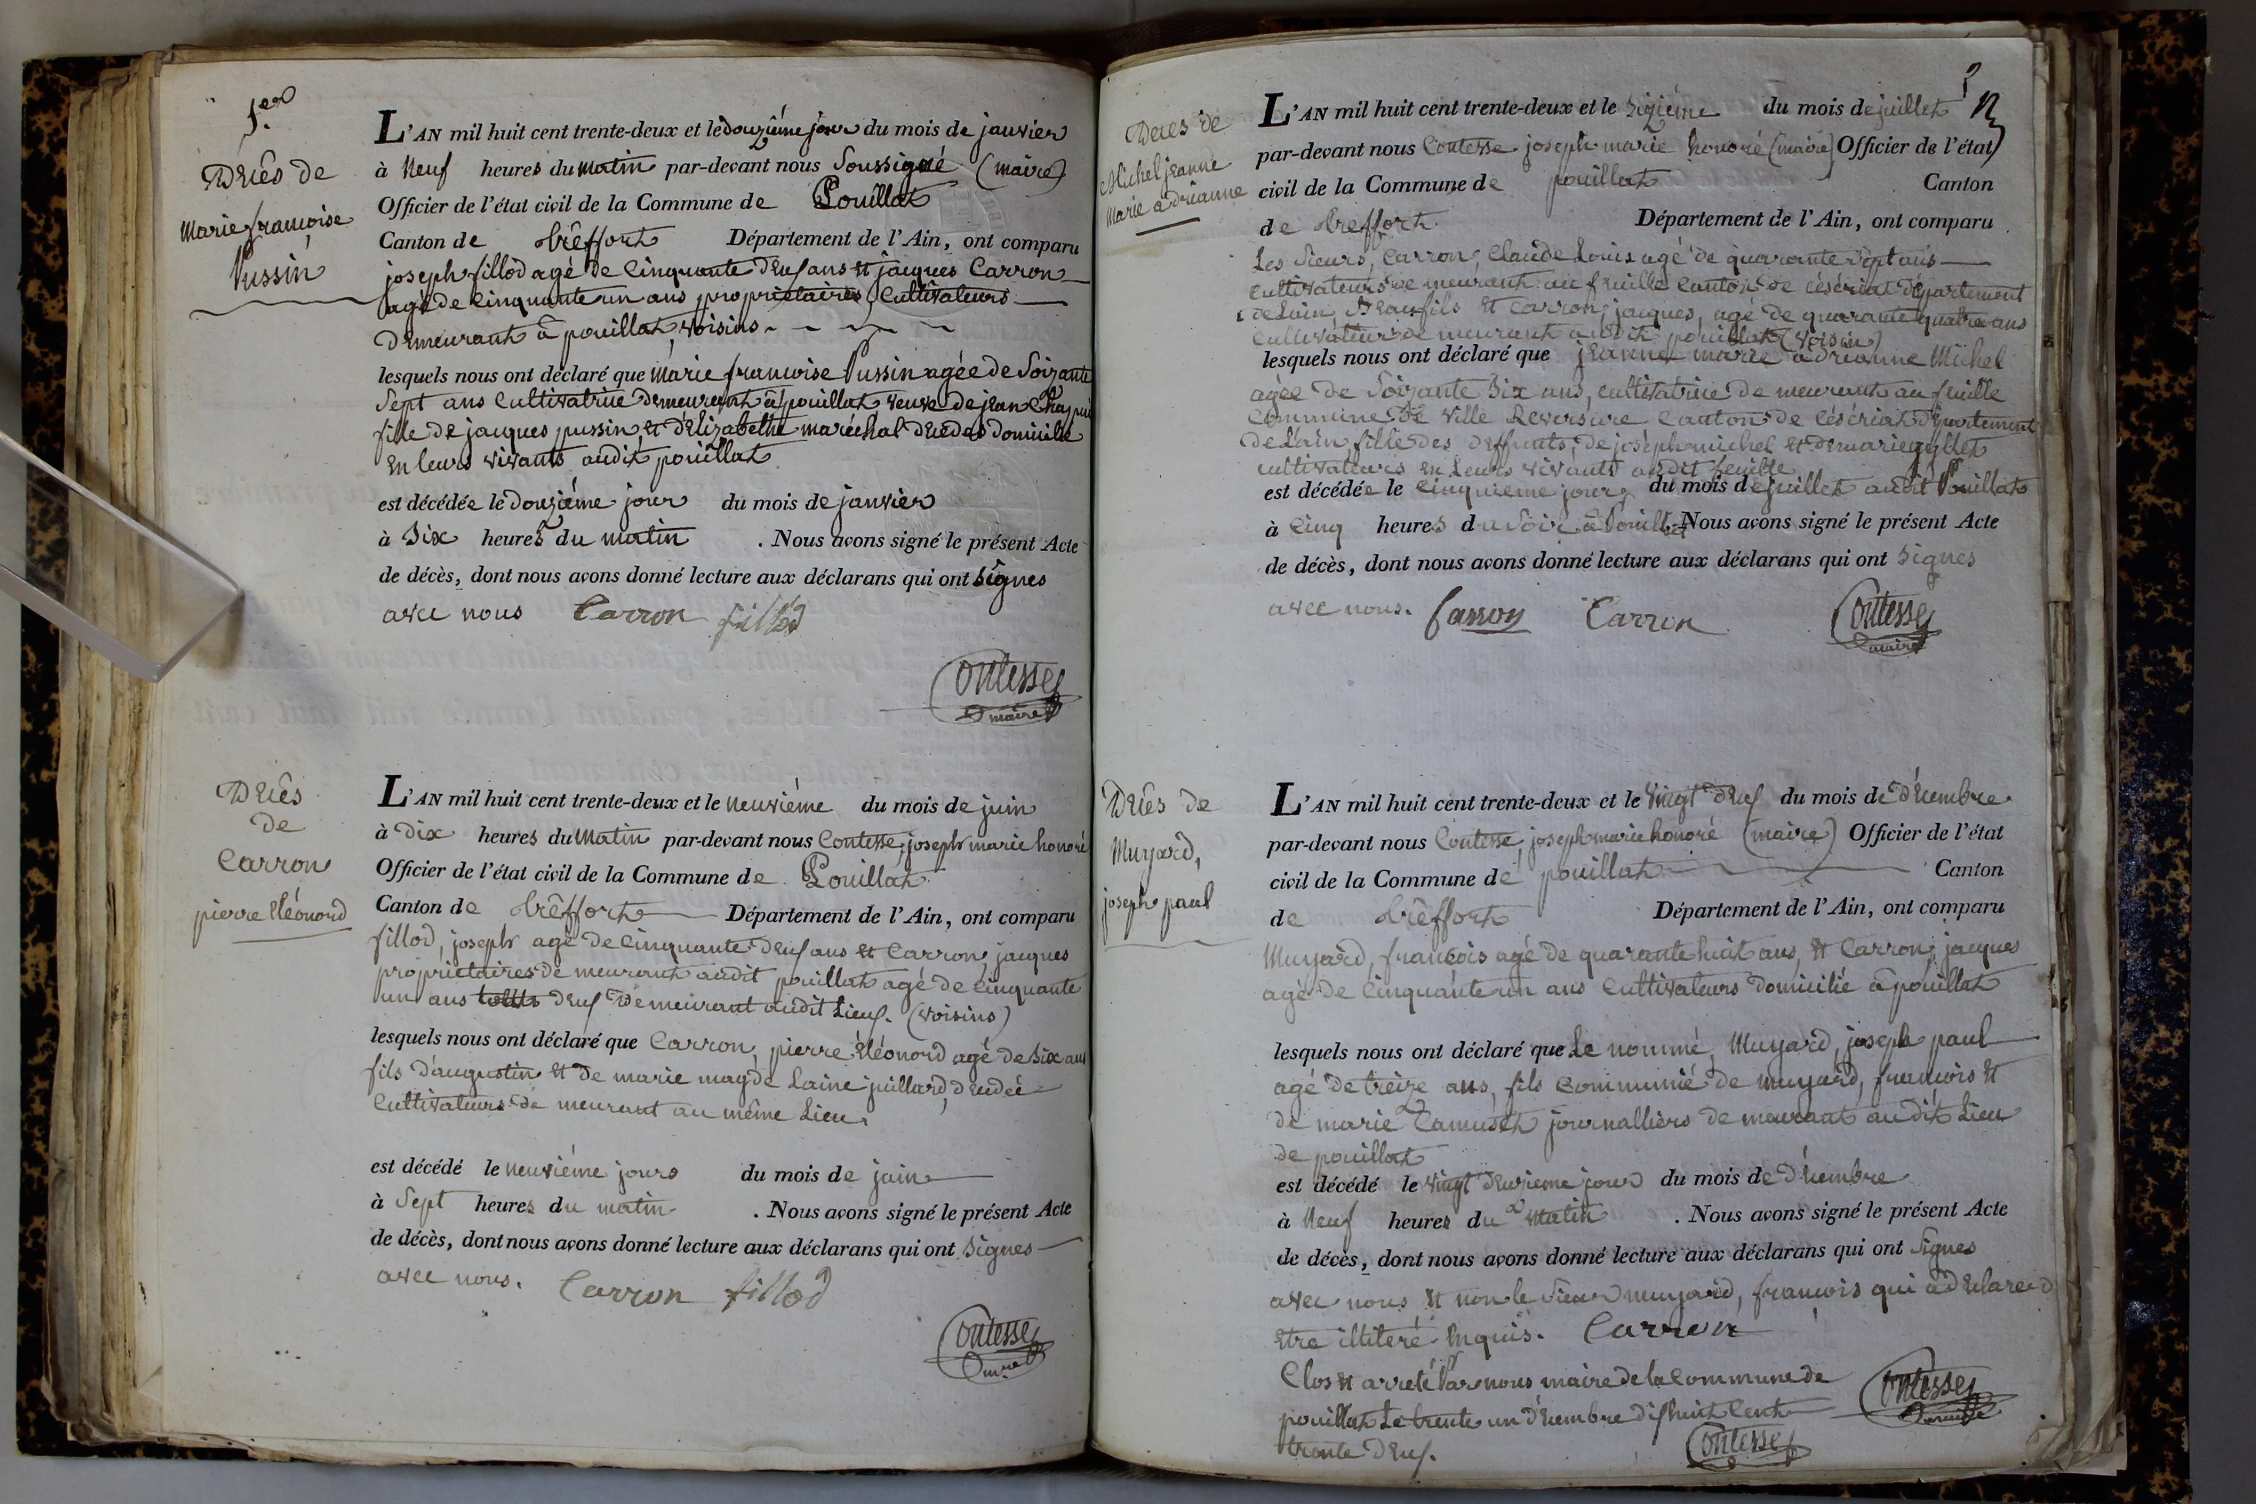 1er
Décès de
Marie françoise
Pussin
L'AN mil huit cent trente-deux et le douzième jour du mois de janvier
à Neuf heures du matin par-devant nous Soussigné (maire)
Officier de l'état civil de la Commune de Pouillat
Canton de trêffort Département de l'Ain, ont comparu
joseph fillod agé de Cinquante deux ans et jacques Carron
agé de Cinquante un ans propriétaires, Cultivateurs
demeurant à pouillat, voisins
lesquels nous ont déclaré que marie francoise Pussin agée de Soixante
Sept ans Cultivatrice demeurant à pouillat veuve de jean
fille de jacques pussin et d'Elizabethe maréchal décédés domicilié
En leurs vivants audit pouillat
est décédée le Douzième jour du mois de janvier
à Six heures du matin . Nous avons signé le présent Acte
de décès, dont nous avons donné lecture aux déclarans qui ont Signés
avec nous Carron fillod
Contesse
maire
Décès
de
Carron
pierre éléonord
L'AN mil huit cent trente-deux et le neuvième du mois de juin
à Dix heures du matin par-devant nous Contesse, joseph marie honoré
Officier de l'état civil de la Commune de Pouillat
Canton de trêffort Département de l'Ain, ont comparu
fillod, joseph agé de Cinquante deux ans et Carron, jacques
propriétaires demeurant audit pouillat agé de Cinquante
un ans deux demeurant audit Lieux. (voisins)
lesquels nous ont déclaré que Carron, pierre éléonord agé de Six ans
fils d'augustin et de marie magde Laine juillard, décédée
Cultivateurs demeurant au même Lieu.
est décédé le neuvième jours du mois de juin
à Sept heures du matin . Nous avons signé le présent Acte
de décès, dont nous avons donné lecture aux déclarans qui ont Signés
avec nous. Carron fillod
Contesse
maire
2
Décès de
Michel jeanne
Marie adrianne
L'AN mil huit cent trente-deux et le Sixième du mois de juillet
par-devant nous Contesse joseph marie honoré (maire) Officier de l'état
civil de la Commune de pouillat Canton
de treffort Département de l'Ain, ont comparu
Les Sieurs, Carron, Claude Louis agé de quarante Sept ans
Cultivateurs demeurant au feuille Canton de Césériat département
de Lain, Beaufils et Carron, jacques, agé de quarante quatre ans
Cultivateur demeurant audit pouillat (voisin)
lesquels nous ont déclaré que jeanne marie adrianne Michel
agée de Soixante Six ans, cultivatrice demeurant au feuille
Commune de Ville Reversure Canton de Césériat département
de Lain fille des deffunts, de joseph michel et de marie
cultivateurs en Leurs vivants audit feuille
est décédée le Cinquieme jour, du mois de juillet audit Pouillat
à Cinq heures du Soir à Pouillat. Nous avons signé le présent Acte
de décès, dont nous avons donné lecture aux déclarans qui ont Signés
avec nous. Carron Carron Contesse
maire
Décès de
Muyard,
joseph paul
L'AN mil huit cent trente-deux et le vingt deux du mois de décembre
par-devant nous Contesse, joseph marie honoré (maire) Officier de l'état
civil de la Commune de pouillat Canton
de trêffort Département de l'Ain, ont comparu
Muyard, françois agé de quarante huit ans, et Carron, jacques
agé de Cinquante un ans Cultivateurs domicilié à pouillat
lesquels nous ont déclaré que Le nommé, Muyard, joseph paul
agé de treize ans, fils Communié de muyard, francois et
de marie Camuset journalliers demeurant audit Lieu
de pouillat
est décédé le vingt deuxieme jour du mois de décembre
à Neuf heures du matin . Nous avons signé le présent Acte
de décès, dont nous avons donné lecture aux déclarans qui ont Signés
avec nous et non le Sieur muyard, francois qui a déclaré
être illiteré Enquis. Carron
Clos et arreté Par nous maire de la Commune de
pouillat Le trente un décembre dix huit Cent
trente deux.
Contesse
maire
Contesse